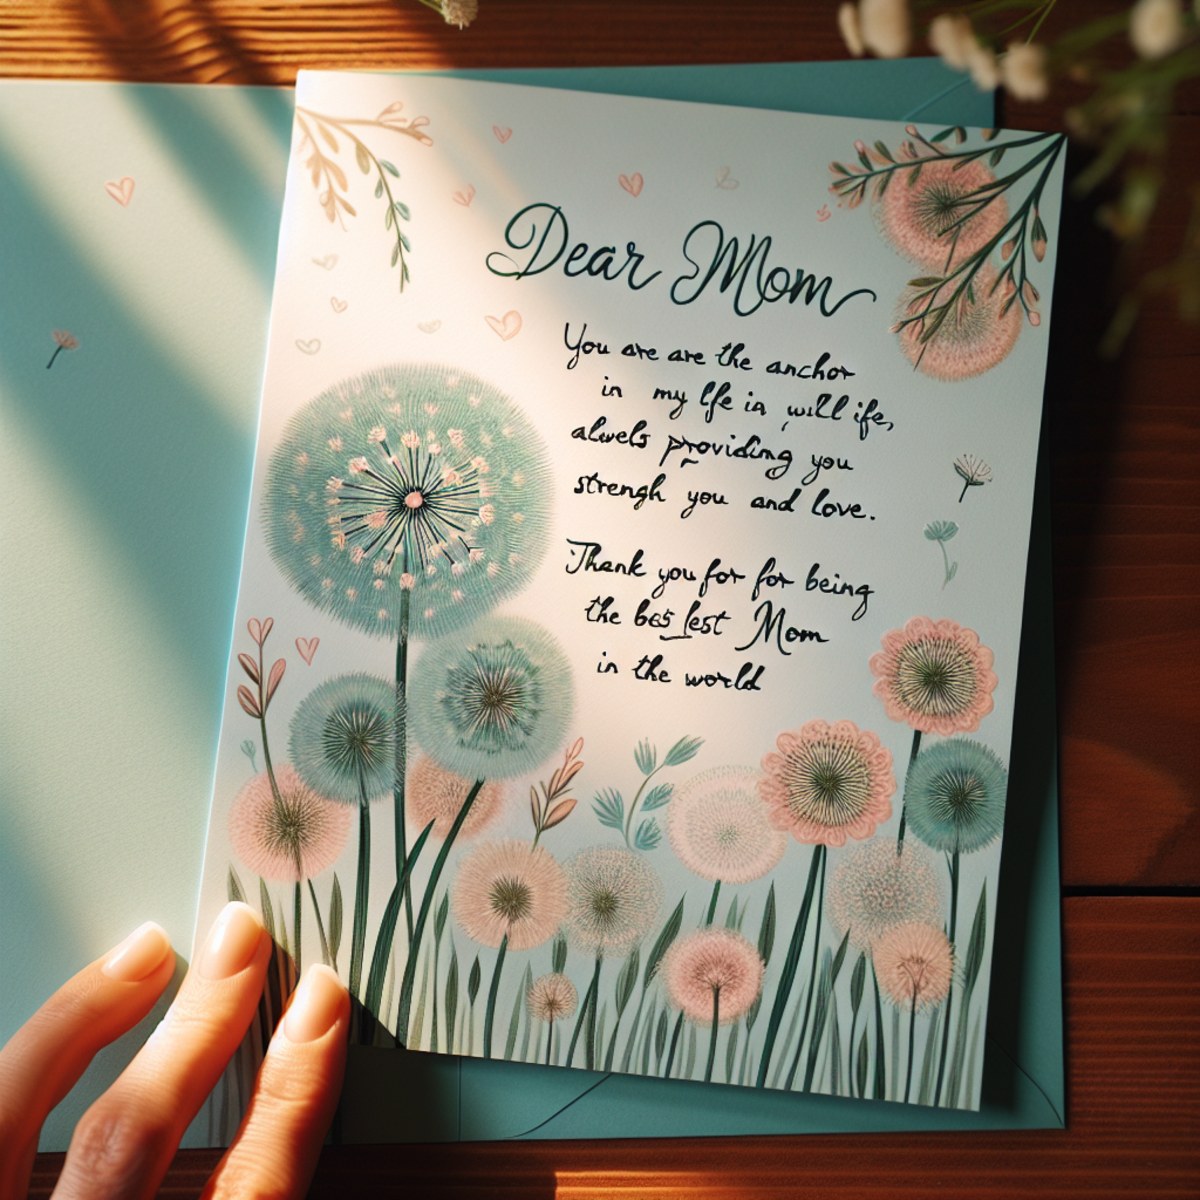 Dear Mom
You are are the anchor
in my lfe in will ife,
alwels providing you
strengh you and love.
Thank you for for being
the bes lest Mom
in the world